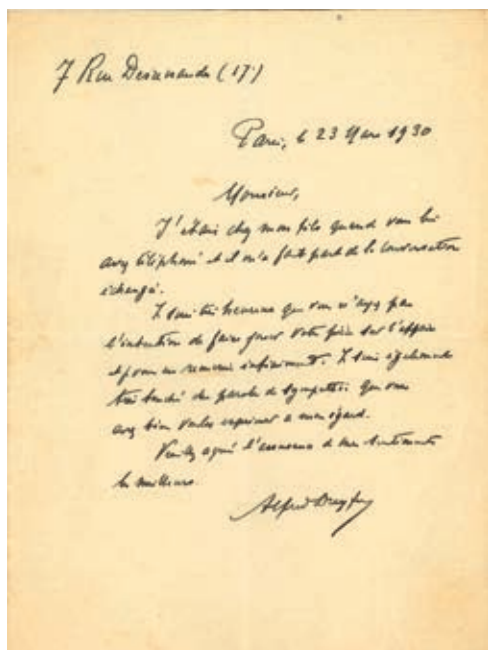 7 Rue Desrenaudes (17e)
Paris, le 23 Mars 1930
Monsieur,
J'étais chez mon fils quand vous lui
avez téléphoné et il m'a fait part de la conversation
échangée.
Je suis très heureux que vous n'ayez pas
l'intention de faire jouer votre pièce sur l'affaire
et vous en remercie infiniment. Je suis également
très touché des paroles de sympathie que vous
avez bien voulu exprimer à mon égard.
Veuillez agréer l'assurance de mes sentiments
les meilleurs.
Alfred Dreyfus